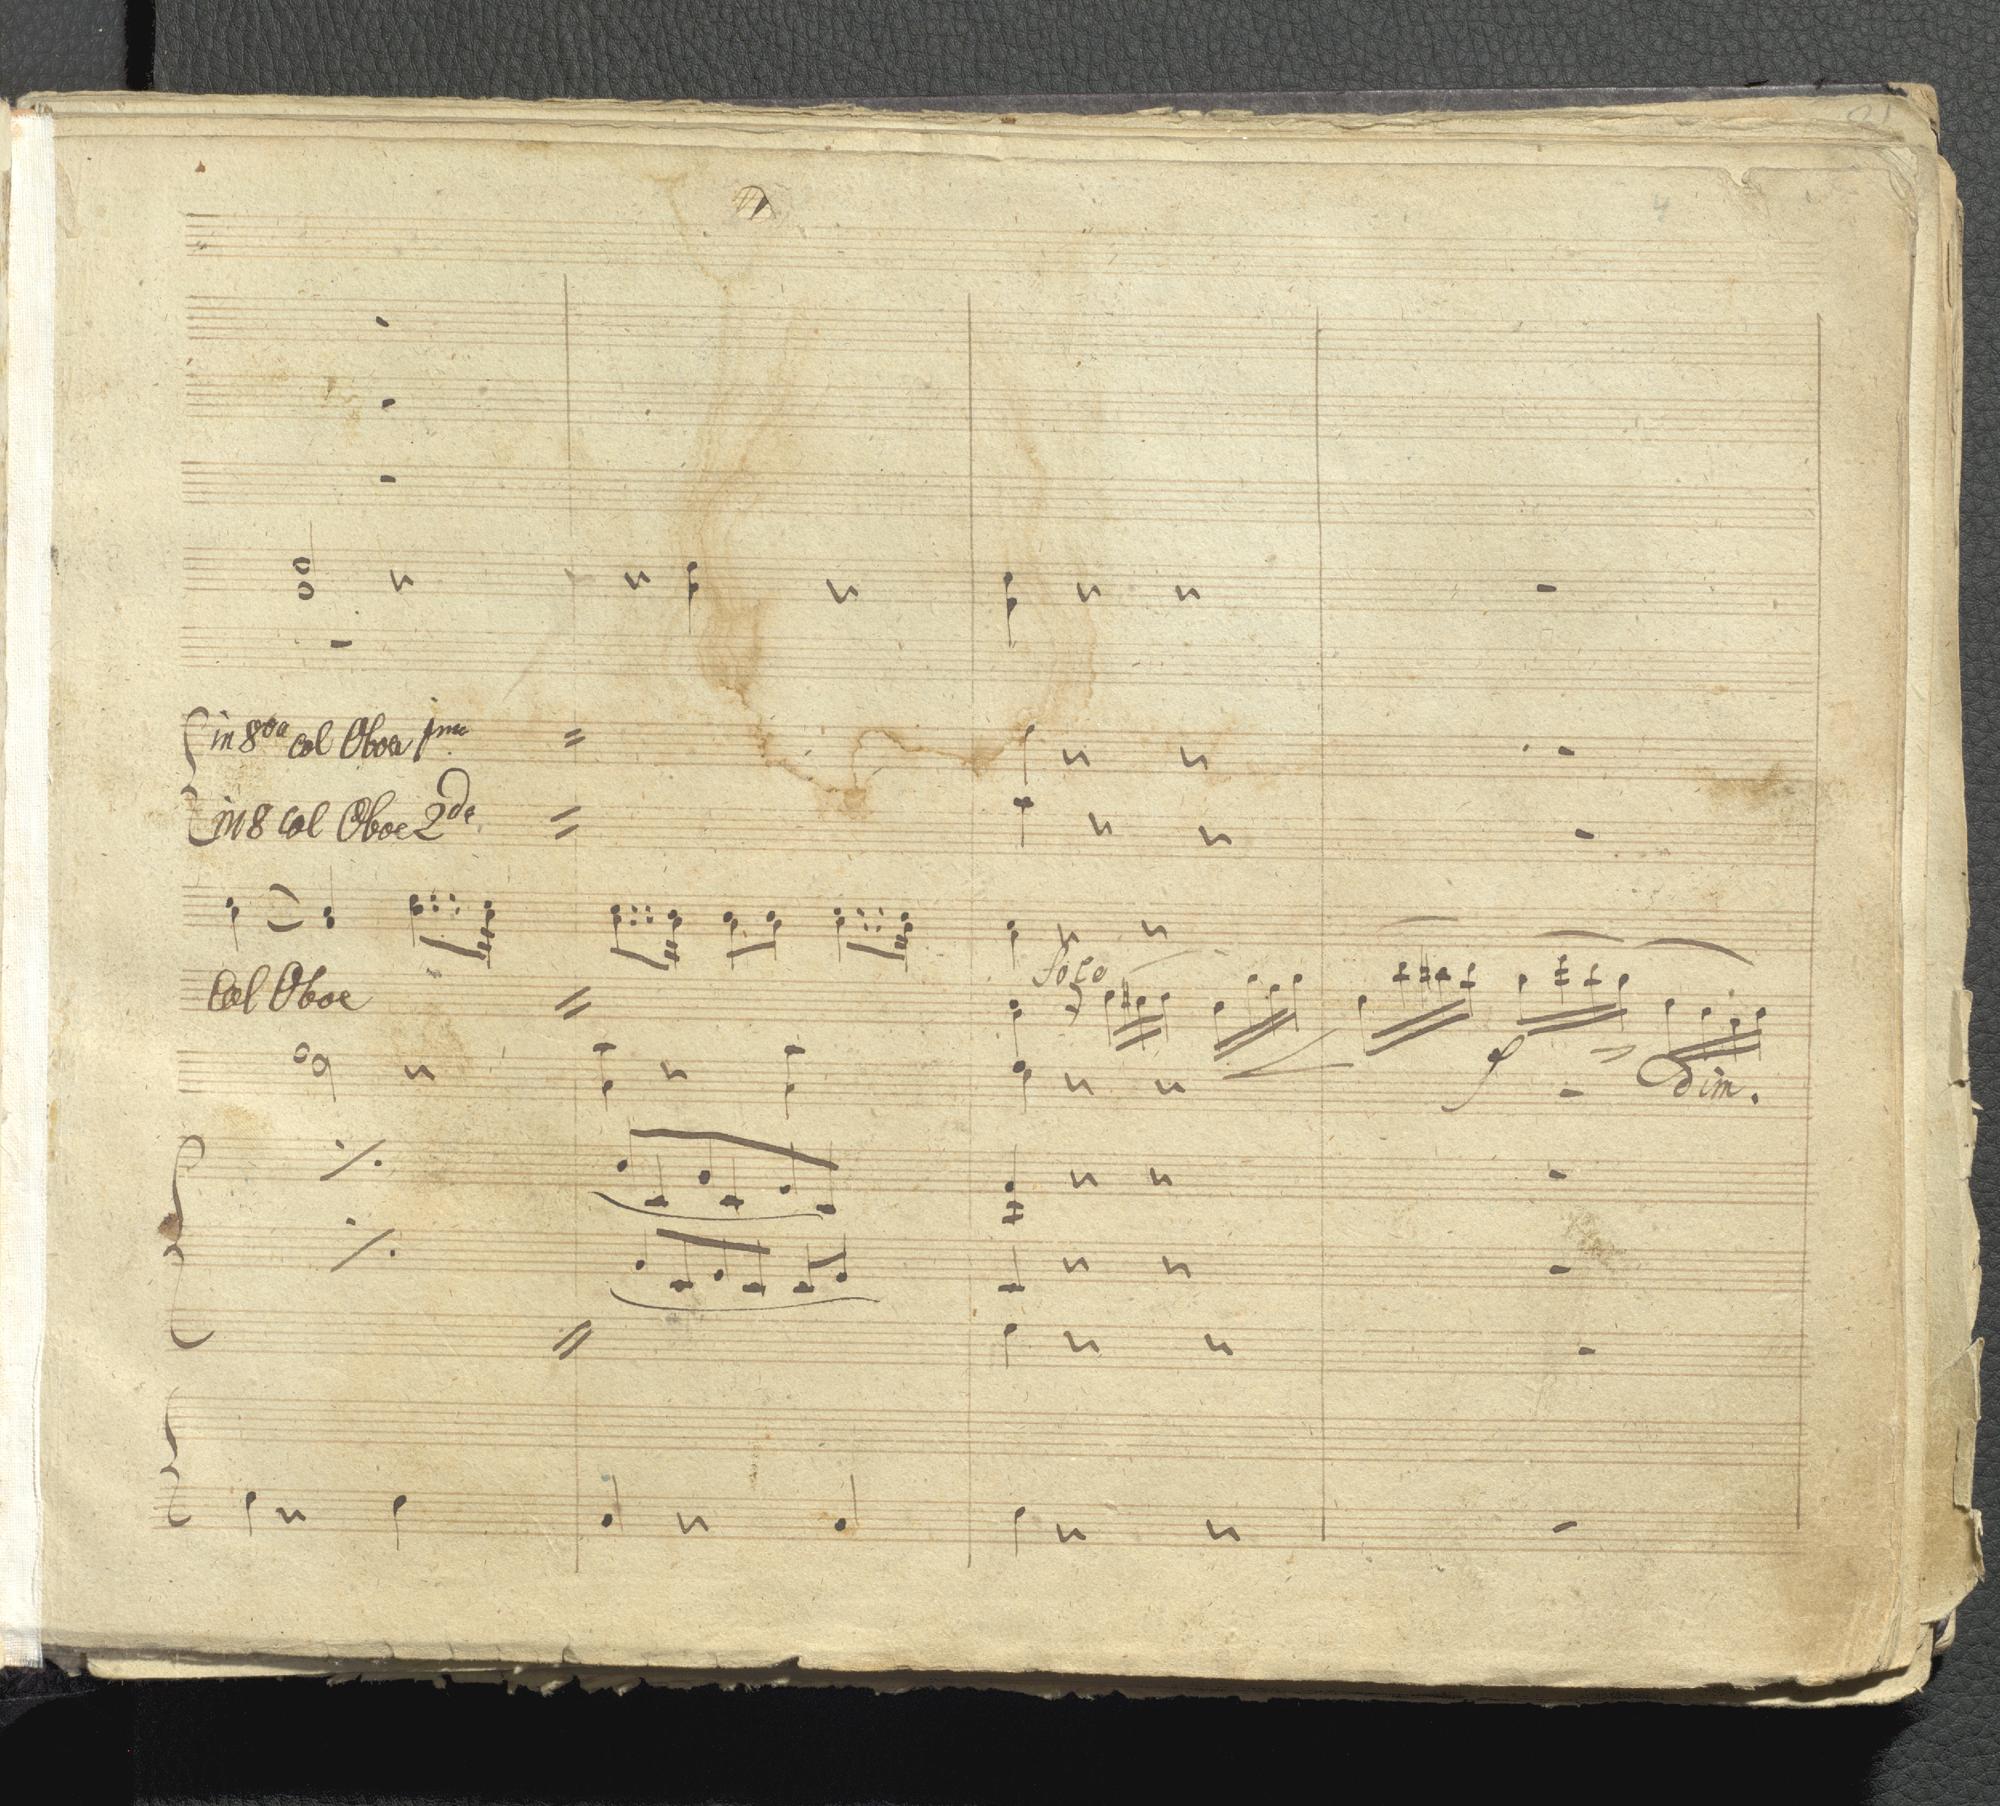 4
in 8va col Oboe 1mo
in 8 Col Oboe 2do
Solo
Col Oboe
f
dim.